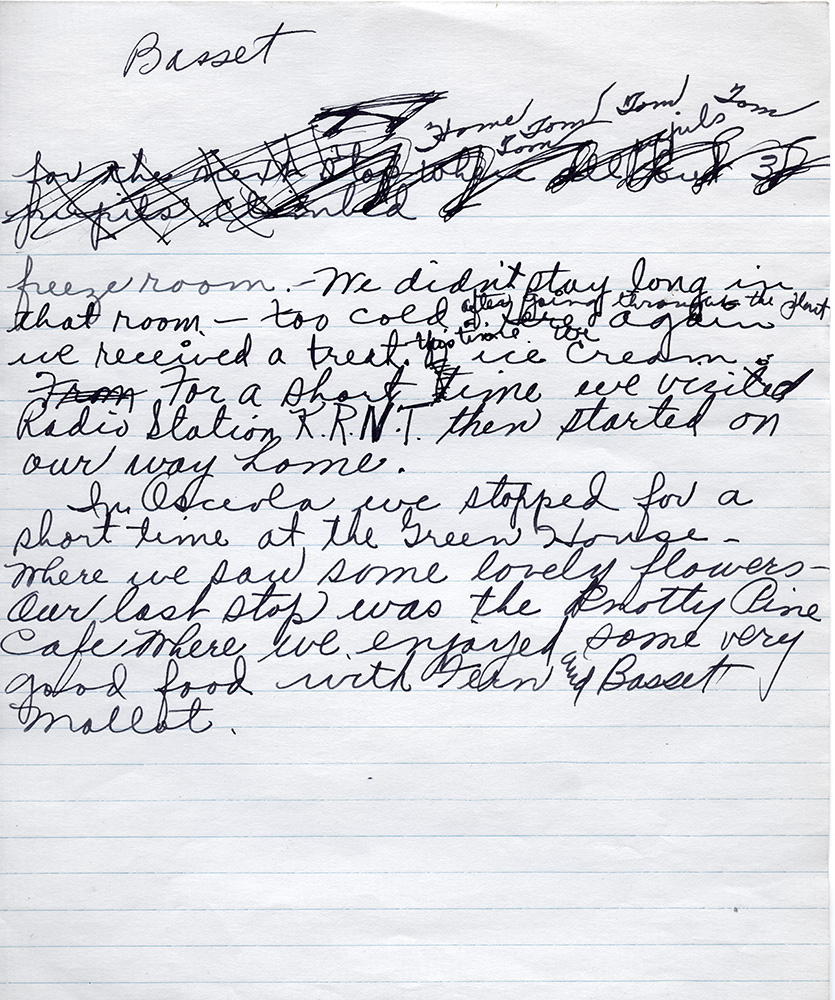 Basset
Home Tom Tom Tom
Tom pupils
for the next stop where all but 3
pupils climbed
freeze room. - We didn't stay long in
that room - too cold after going through the plant
Here again
we received a treat this time of ice cream. We
From For a short time we visited
Radio Station K.R.N.T. then started on
our way home.
In Osceola we stopped for a
short time at the Green House -
Where we saw some lovely flowers -
Our last stop was the Knotty Pine
Cafe Where we enjoyed some very
good food with Jean and Basset
Mallot.